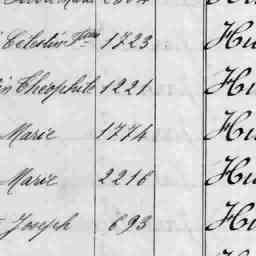 Célestin 1723 Hu
in Théophile 1221 Hu
Marie 1774 Hu
Marie 2216 Hu
Joseph 693 Hu